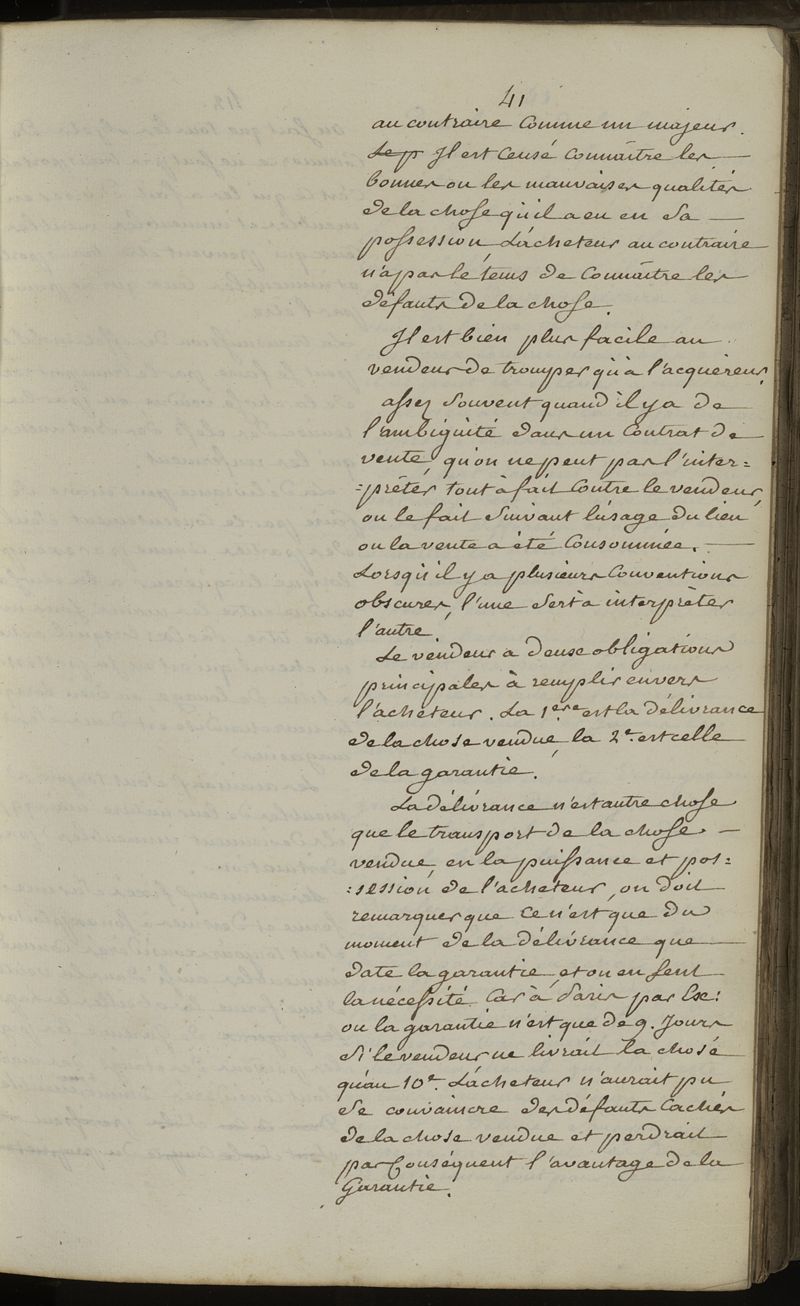 41
au contraire comme un majeur.
Le p Il est censé connaître les —
bonnes ou les mauvaises qualités
de la chose qu'il a eu en sa —
possession, L'acheteur au contraire
n'a pas le tems de connaître les
défauts de la chose.
Il est bien plus facile au
vendeur de tromper qu'à l'acquéreur,
assez souvent quand il y a de
l'ambiguité dans un contrat de
vente, qu'on ne peut pas l'inter=
=prêter tout à fait contre le vendeur,
on le fait suivant l'usage du lieu
ou la vente a été consommée. —
Lorsqu'il y a plusieurs conventions
obscures, l'une sert à interprèter
l'autre.
Le vendeur a deuse obligations
principales à remplir envers
l'acheteur. La 1ere est la délivrance
de la chose vendue, la 2e. est celle
de la garantie.
La délivrance n'est autre chose
que le transport de la chose —
vendue en la puissance et pos=
=session de l'acheteur, on doit
remarquer que ce n'est que du
moment de la délivrance que —
date la garantie, et on en sent
la nécessité. Car à Paris par Ex:
ou la garantie n'est que de 9. Jours
si le vendeur ne livrait la chose
qu'au 10e. L'acheteur n'aurait pu
se convaincre des défauts cachés
de la chose vendue et perdrait
par conséquent l'avantage de la
Garantie.